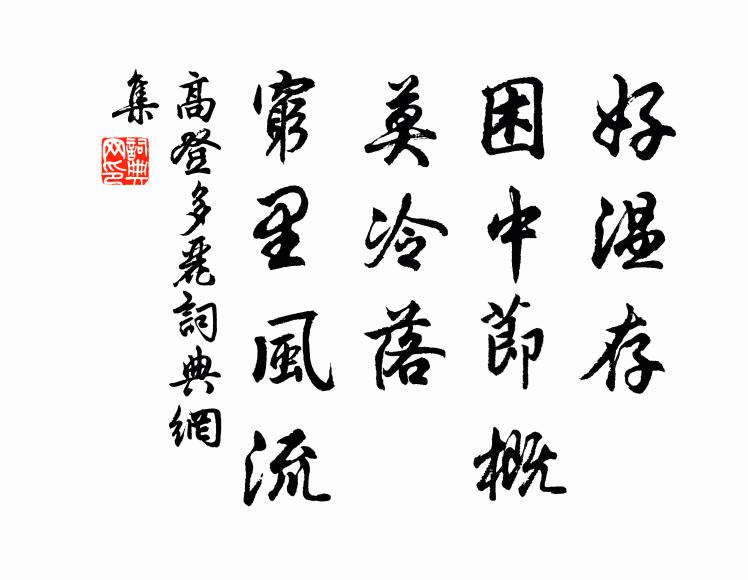 好温存
困中節概
莫冷落
窮里風流
高登多麗詞典網
集
詞典
网印